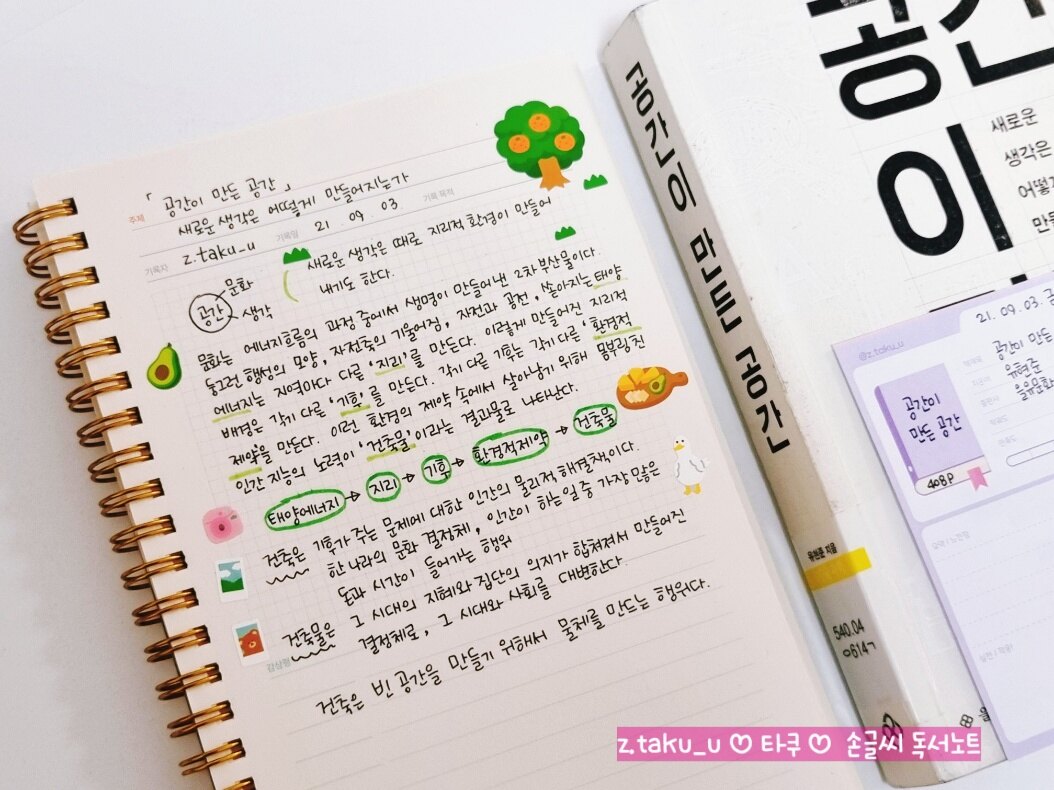 주제
「 공간이 만든 공간 」
새로운 생각은 어떻게 만들어지는가
기록자
z.taku_u
기록일
21. 09. 03.
기록 목적
공간
문화
생각
새로운 생각은 때로 지리적 환경이 만들어
내기도 한다.
문화는 에너지흐름의 과정 중에서 생명이 만들어낸 2차 부산물이다.
둥그런 행성의 모양, 자전축의 기울어짐, 자전과 공전, 쏟아지는 태양
에너지는 지역마다 다른 '지리'를 만든다. 이렇게 만들어진 지리적
배경은 각기 다른 '기후'를 만든다. 각기 다른 기후는 각기 다른 '환경적
제약'을 만든다. 이런 환경의 제약 속에서 살아남기 위해 몸부림친
인간 지능의 노력이 '건축물'이라는 결과물로 나타난다.
태양에너지 → 지리 → 기후 → 환경적제약 → 건축물
건축은 기후가 주는 문제에 대한 인간의 물리적 해결책이다.
한 나라의 문화 결정체, 인간이 하는 일 중 가장 많은
돈과 시간이 들어가는 행위
건축물은 그 시대의 지혜와 집단의 의지가 합쳐져서 만들어진
결정체로, 그 시대와 사회를 대변한다.
감상평
건축은 빈 공간을 만들기 위해서 물체를 만드는 행위다.
공간이 만든 공간
유현준 지음
540.04
ㅇ614ㄱ
공간
이
새로운
생각은
어떻게
만
@z.taku_u
21. 09. 03.
공간이 만든
유현준
을유문화
공간이
만든 공간
408P
z.taku_u ♡ 타쿠 ♡ 손글씨 독서노트